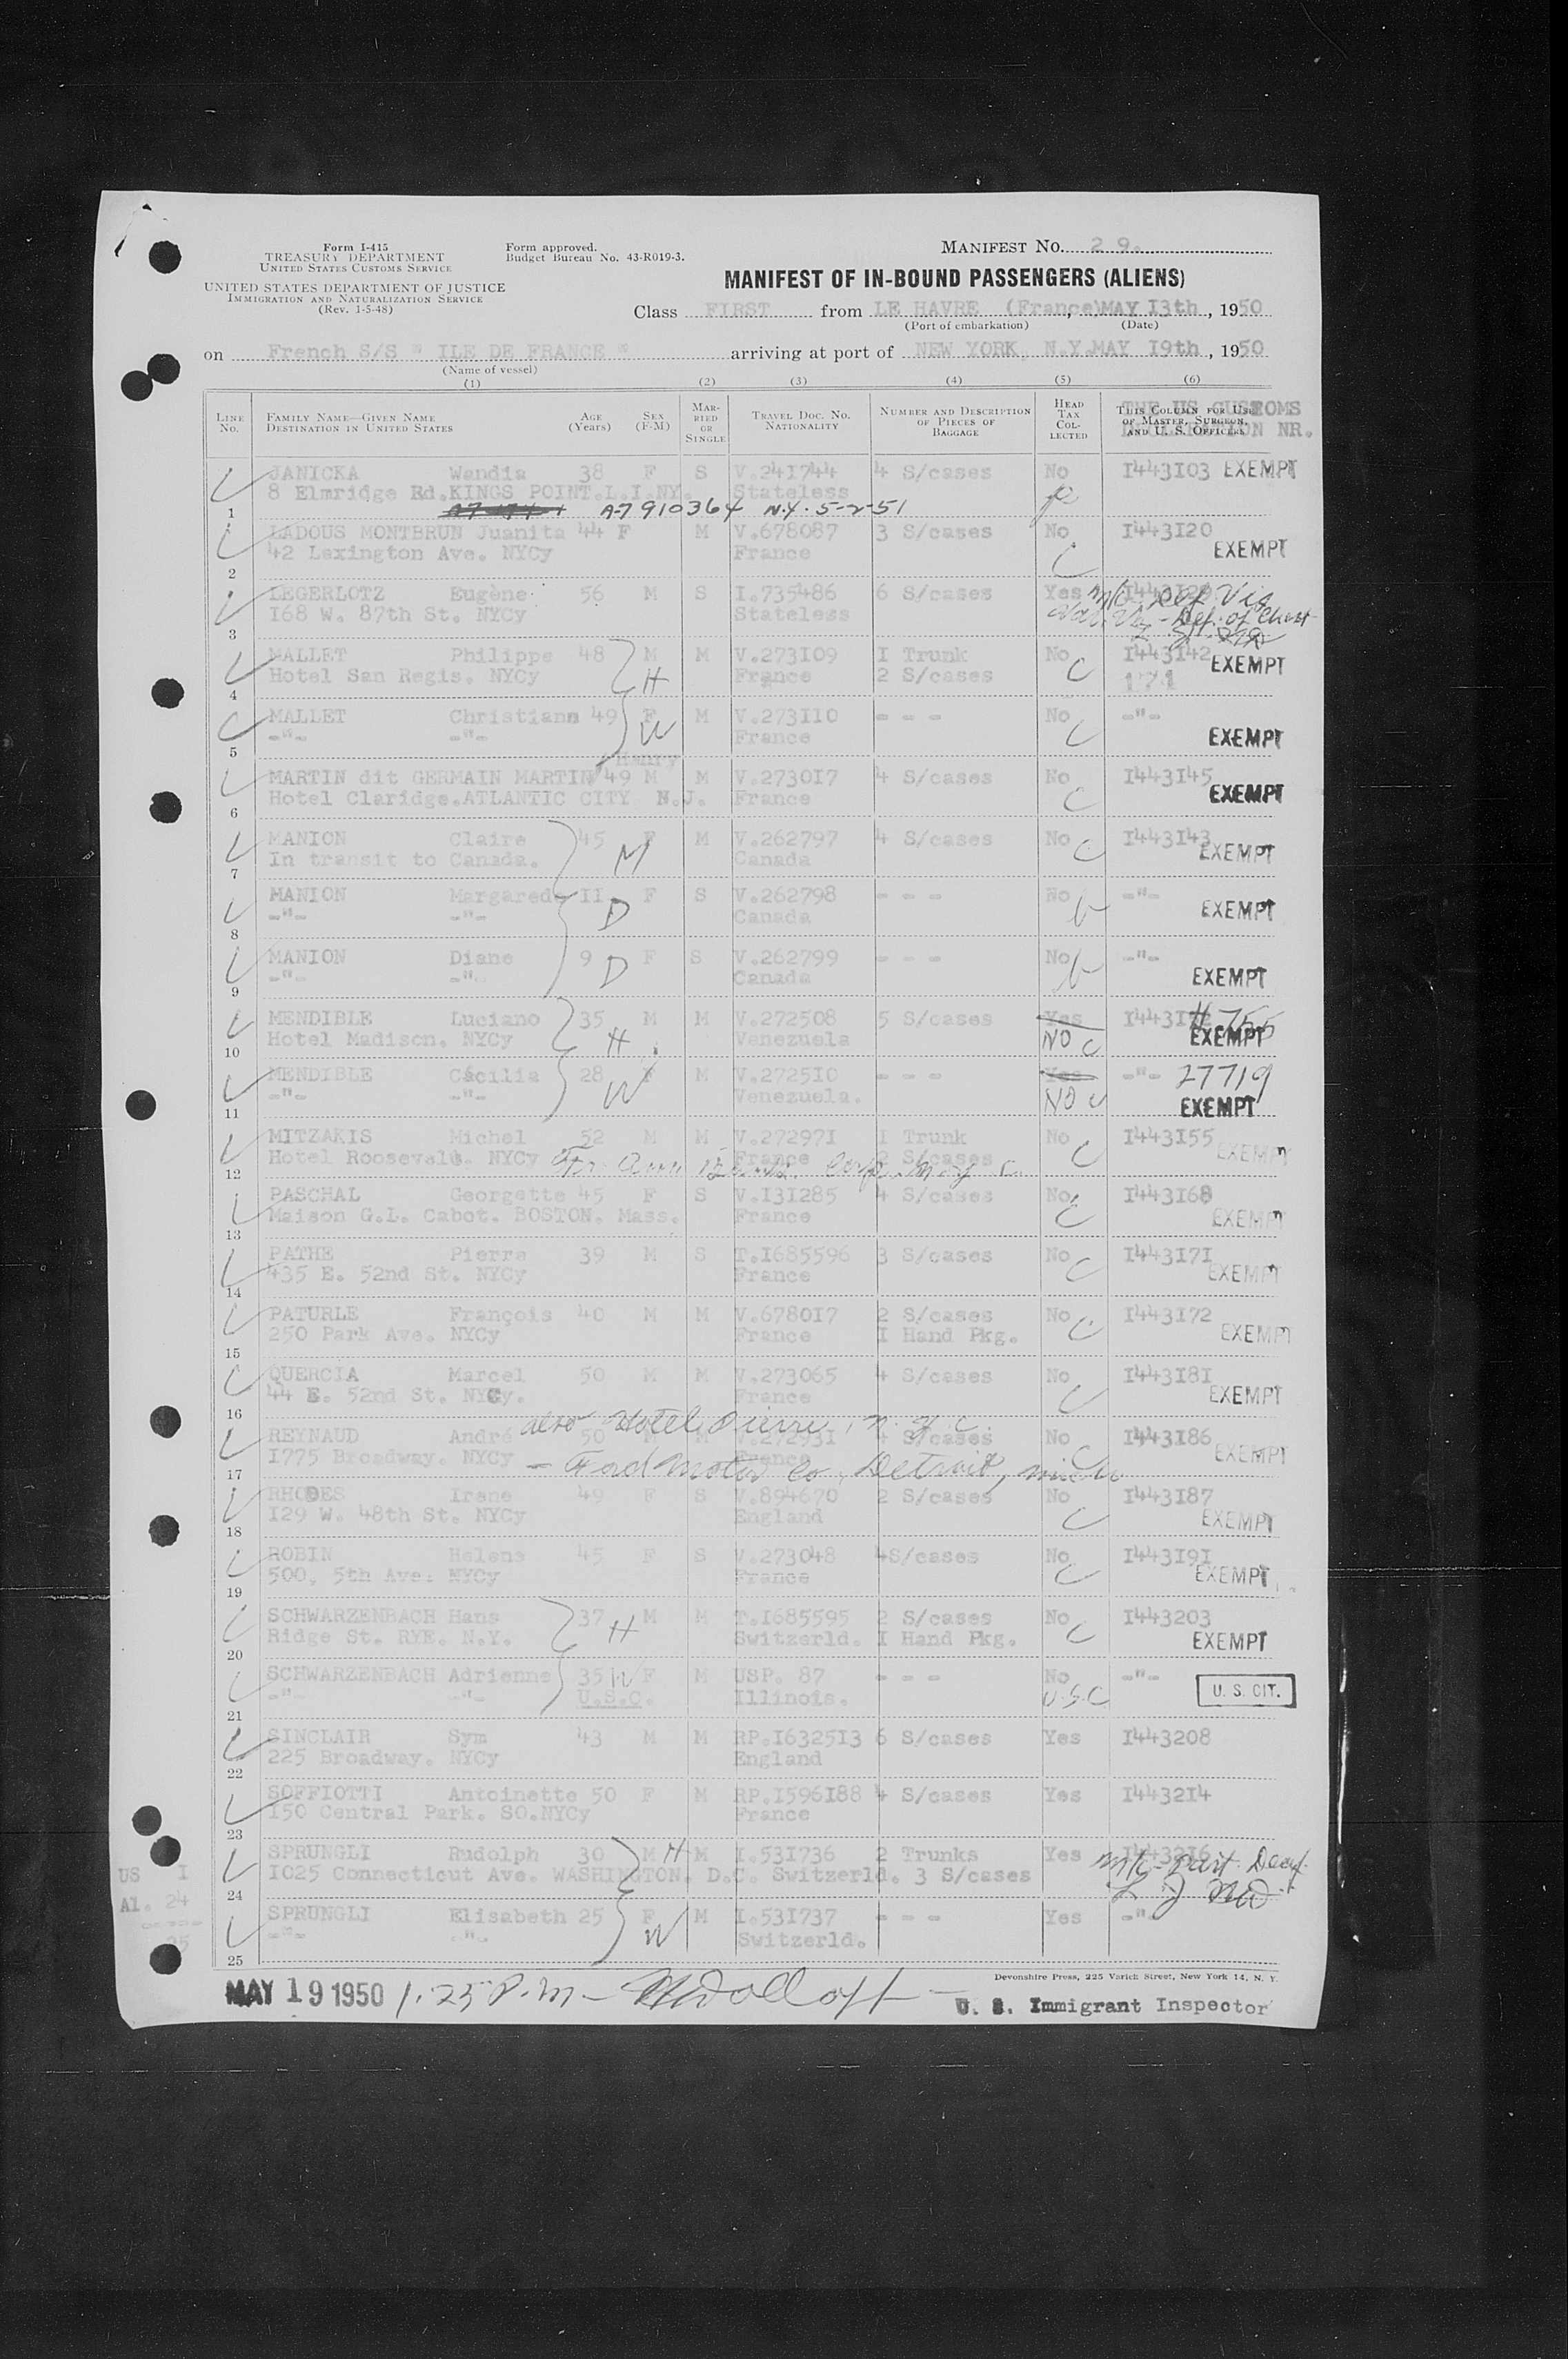 Form I-415
TREASURY DEPARTMENT
UNITED STATES CUSTOMS SERVICE
UNITED STATES DEPARTMENT OF JUSTICE
IMMIGRATION AND NATURALIZATION SERVICE
(Rev. 1-5-48)
Form approved.
Budget Bureau No. 43-R019-3.
MANIFEST NO. 29.
MANIFEST OF IN-BOUND PASSENGERS (ALIENS)
Class FIRST from LE HAVRE (France), MAY I3th, 1950
(Port of embarkation) (Date)
on French S/S " ILE DE FRANCE " arriving at port of NEW YORK, N.Y. MAY I9th, 1950
(Name of vessel)
(1) (2) (3) (4) (5) (6)
LINE NO. FAMILY NAME—GIVEN NAME DESTINATION IN UNITED STATES AGE (Years) SEX (F-M) MARRIED OR SINGLE TRAVEL DOC. NO. NATIONALITY NUMBER AND DESCRIPTION OF PIECES OF BAGGAGE HEAD TAX COLLECTED THIS COLUMN FOR USE OF MASTER, SURGEON, AND U. S. OFFICERS
JANICKA Wandia 38 F S V.24I744 4 S/cases No I443I03 EXEMPT
8 Elmridge Rd.KINGS POINT.L.I.NY. Stateless
1 A7 910364 N.Y. 5-2-51
LADOUS MONTBRUN Juanita 44 F M V.678087 3 S/cases No I443I20
42 Lexington Ave. NYCy France C EXEMPT
2
LEGERLOTZ Eugène 56 M S I.735486 6 S/cases Yes
I68 W. 87th St. NYCy Stateless Def. of Chest
3
MALLET Philippe 48 M M V.273I09 I Trunk No I443I42
Hotel San Regis. NYCy H France 2 S/cases C EXEMPT
4 171
MALLET Christiann 49 F M V.273II0 - - - No -"-
-"- -"- W France C EXEMPT
5
Henry
MARTIN dit GERMAIN MARTIN 49 M M V.2730I7 4 S/cases No I443I45
Hotel Claridge.ATLANTIC CITY N.J. France C EXEMPT
6
MANION Claire 45 F M V.262797 4 S/cases No I443I43
In transit to Canada. M Canada C EXEMPT
7
MANION Margared II F S V.262798 - - - No -"-
-"- -"- D Canada EXEMPT
8
MANION Diane 9 F S V.262799 - - - No -"-
-"- -"- D Canada EXEMPT
9
MENDIBLE Luciano 35 M M V.272508 5 S/cases Yes
Hotel Madison. NYCy H Venezuela NO C EXEMPT
10
MENDIBLE Cécilia 28 F M V.2725I0 - - - Yes -"- 27719
-"- -"- W Venezuela. NO C EXEMPT
11
MITZAKIS Michel 52 M M V.27297I I Trunk No I443I55
Hotel Roosevelt. NYCy France 2 S/cases C EXEMPT
12
PASCHAL Georgette 45 F S V.I3I285 4 S/cases No I443I68
Maison G.L. Cabot. BOSTON. Mass. France C EXEMPT
13
PATHE Pierre 39 M S T.I685596 3 S/cases No I443I7I
435 E. 52nd St. NYCy France C EXEMPT
14
PATURLE François 40 M M V.6780I7 2 S/cases No I443I72
250 Park Ave. NYCy France I Hand Pkg. C EXEMPT
15
QUERCIA Marcel 50 M M V.273065 4 S/cases No I443I8I
44 E. 52nd St. NYCy. France C EXEMPT
16 also Hotel Pierre, N.Y.C.
REYNAUD André 50 M M V.27293I 4 S/cases No I443I86
I775 Broadway. NYCy France C EXEMPT
17 - Ford Motor Co, Detroit, Mich
RHODES Irene 49 F S V.894670 2 S/cases No I443I87
I29 W. 48th St. NYCy England C EXEMPT
18
ROBIN Helene 45 F S V.273048 4S/cases No I443I9I
500, 5th Ave. NYCy France C EXEMPT
19
SCHWARZENBACH Hans 37 M M T.I685595 2 S/cases No I443203
Ridge St. RYE. N.Y. H Switzerld. I Hand Pkg. C EXEMPT
20
SCHWARZENBACH Adrienne 35 W F M USP. 87 - - - No -"-
-"- -"- U.S.C. Illinois. U.S.C U. S. CIT.
21
SINCLAIR Sym 43 M M RP.I6325I3 6 S/cases Yes I443208
225 Broadway. NYCy England
22
SOFFIOTTI Antoinette 50 F M RP.I596I88 4 S/cases Yes I4432I4
I50 Central Park. SO.NYCy France
23
SPRUNGLI Rudolph 30 M H M I.53I736 2 Trunks Yes I4432I6
I025 Connecticut Ave. WASHINGTON. D.C. Switzerld. 3 S/cases
24
SPRUNGLI Elisabeth 25 F M I.53I737 - - - Yes -"-
-"- -"- W Switzerld.
25
US I
Al. 24
25
Devonshire Press, 225 Varick Street, New York 14, N. Y.
MAY 19 1950 1.25 P.m -
U. S. Immigrant Inspector